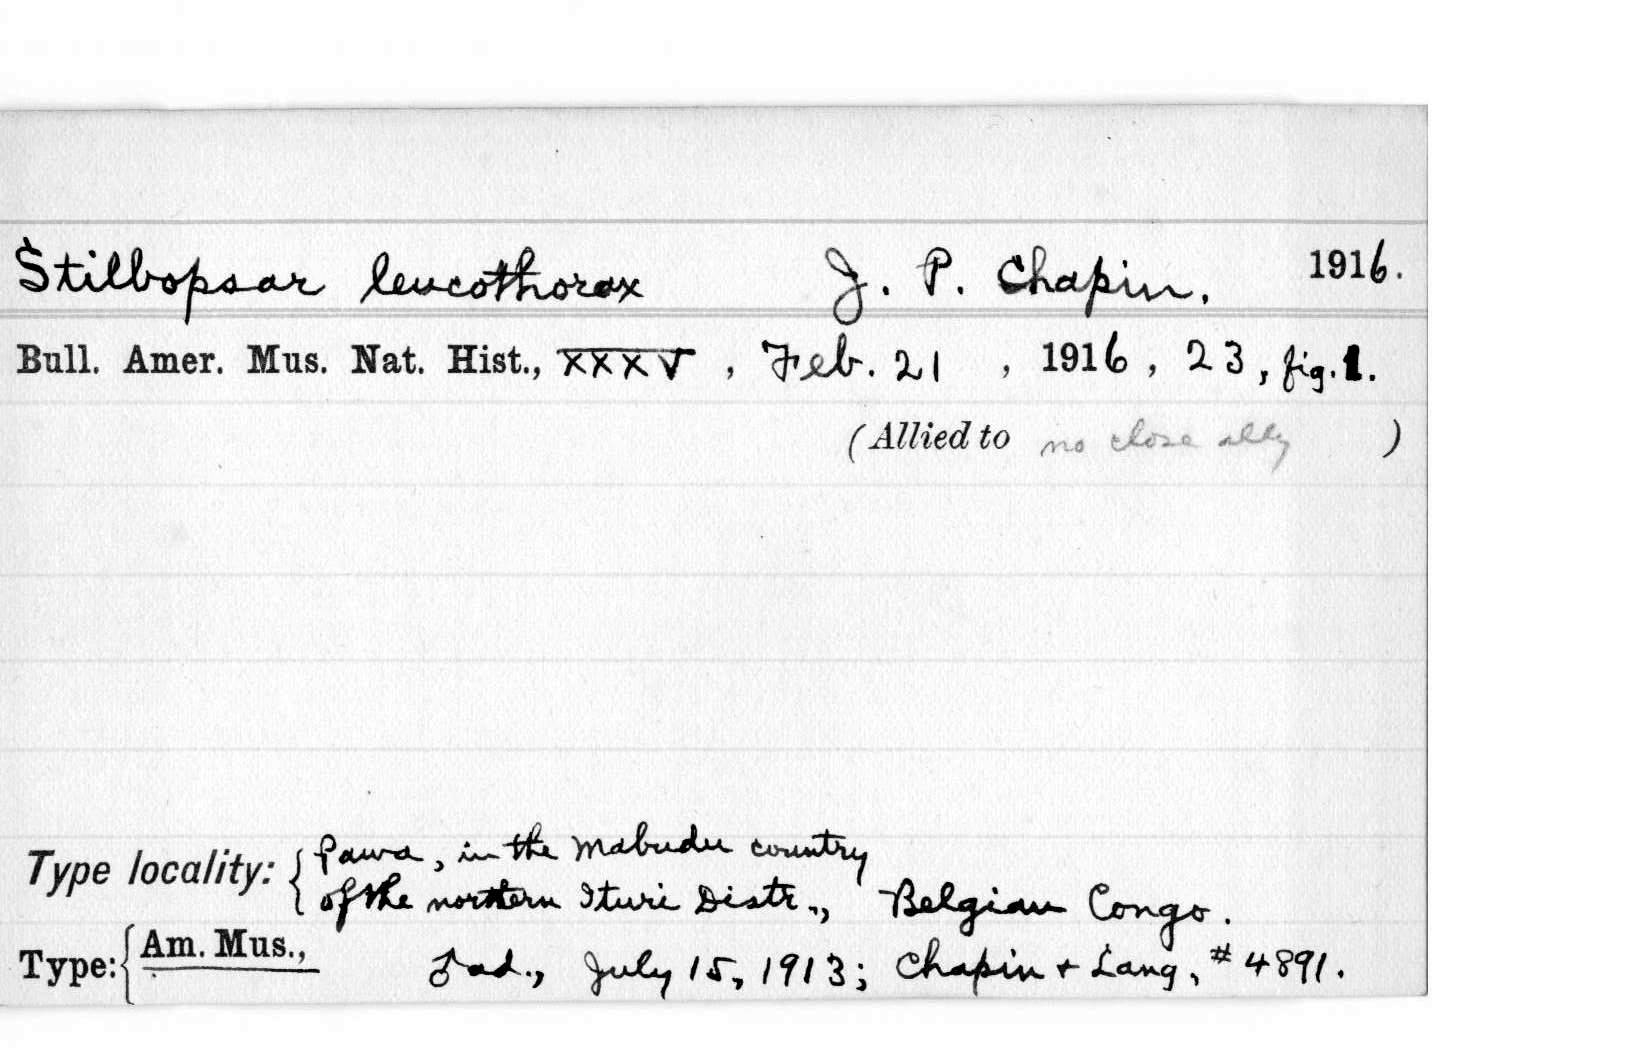 Stilbopsar leucothorax J. P. Chapin, 1916.
Bull. Amer. Mus. Nat. Hist., XXXV, Feb. 21, 1916, 23, fig. 1.
(Allied to no close ally)
Type locality: { Pawa, in the Mabudu country
of the northern Ituri Distr., Belgian Congo.
Type: { Am. Mus., ♂ ad., July 15, 1913; Chapin + Lang, # 4891.